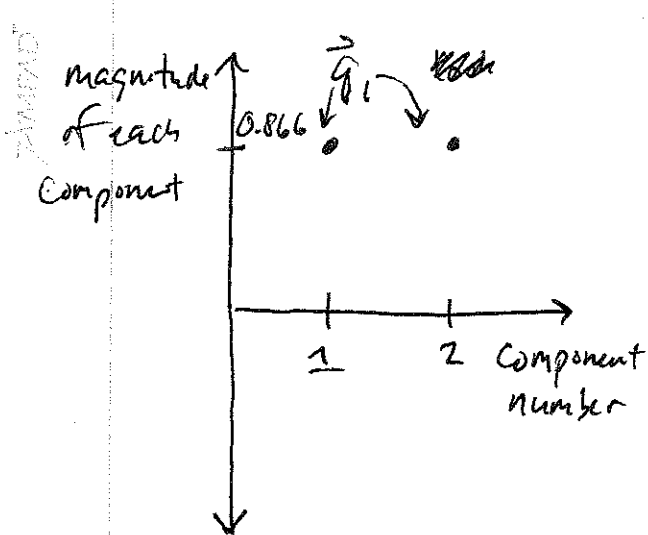 magnitude
of each
component
0.866
q⃗₁
1
2
Component
number
AMPAD